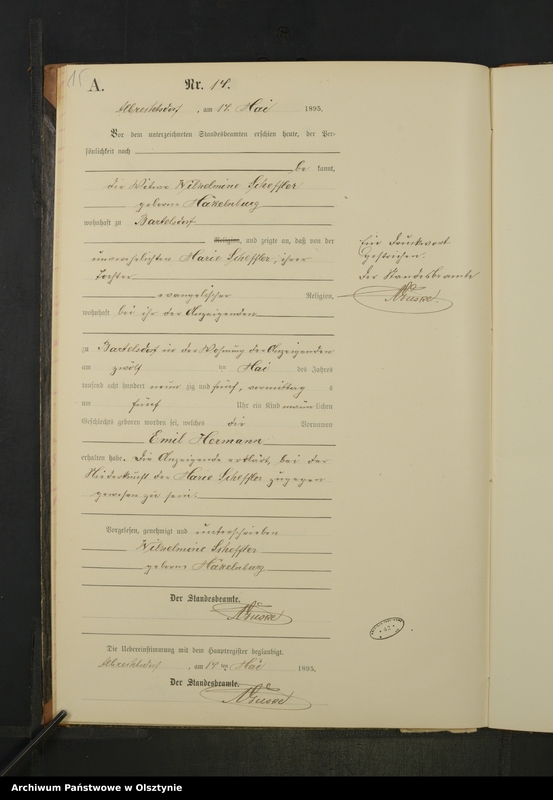 15
A.
Nr. 14.
Albrechtsdorf, am 14. Mai 1895.
Vor dem unterzeichneten Standesbeamten erschien heute, der Per-
sönlichkeit nach
be kannt,
die Witwe Wilhelmine Scheffler
geborne
wohnhaft zu Bartelsdorf
Religion, und zeigte an, daß von der
unverehelichten Marie Scheffler, ihrer
Tochter
evangelischer Religion,
wohnhaft bei ihr der Anzeigenden
zu Bartelsdorf in der Wohnung der Anzeigenden
am zwölf ten Mai des Jahres
tausend acht hundert neun zig und fünf, vormittags
um fünf Uhr ein Kind männlichen
Geschlechts geboren worden sei, welches die Vornamen
Emil Hermann
erhalten habe. Die Anzeigende erklärt, bei der
Niederkunft der Marie Scheffler zugegen
gewesen zu sein.
Vorgelesen, genehmigt und unterschrieben
Wilhelmine Scheffler
geborne
Der Standesbeamte.
Die Uebereinstimmung mit dem Hauptregister beglaubigt.
Albrechtsdorf, am 14 ten Mai 1895.
Der Standesbeamte.
Ein Druckwort
gestrichen.
Der Standesbeamte
Archiwum Państwowe w Olsztynie